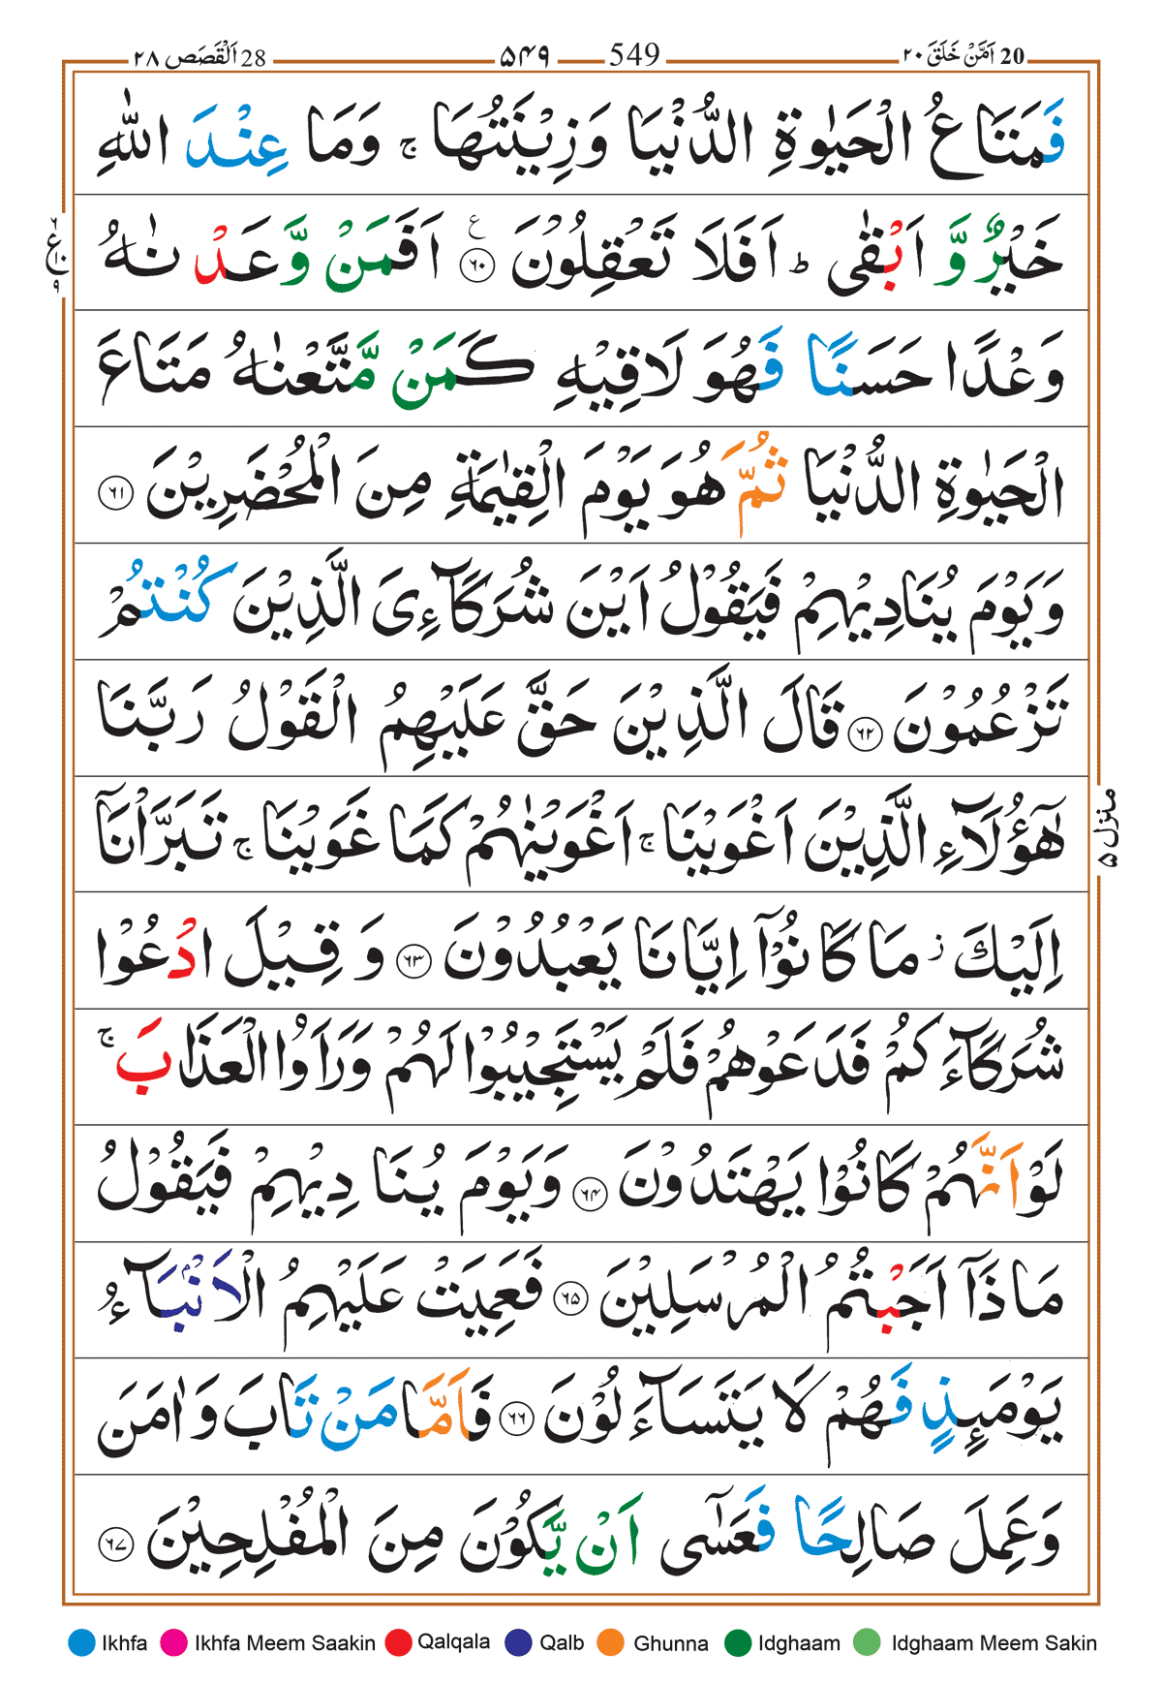 20 اَمَّنْ خَلَقَ ۲۰ 549 ۵۴۹ 28 اَلْقَصَص ۲۸
فَمَتَاعُ الْحَيٰوةِ الدُّنْيَا وَزِيْنَتُهَا ۚ وَمَا عِنْدَ اللّٰهِ
خَيْرٌ وَّ اَبْقٰى ؕ اَفَلَا تَعْقِلُوْنَ ۶۰ ع اَفَمَنْ وَّعَدْنٰهُ
وَعْدًا حَسَنًا فَهُوَ لَاقِيْهِ كَمَنْ مَّتَّعْنٰهُ مَتَاعَ
الْحَيٰوةِ الدُّنْيَا ثُمَّ هُوَ يَوْمَ الْقِيٰمَةِ مِنَ الْمُحْضَرِيْنَ ۶۱
وَيَوْمَ يُنَادِيْهِمْ فَيَقُوْلُ اَيْنَ شُرَكَآءِىَ الَّذِيْنَ كُنْتُمْ
تَزْعُمُوْنَ ۶۲ قَالَ الَّذِيْنَ حَقَّ عَلَيْهِمُ الْقَوْلُ رَبَّنَا
هٰٓؤُلَآءِ الَّذِيْنَ اَغْوَيْنَا ۚ اَغْوَيْنٰهُمْ كَمَا غَوَيْنَا ۚ تَبَرَّاْنَآ
منزل ۵
اِلَيْكَ ؗ مَا كَانُوْٓا اِيَّانَا يَعْبُدُوْنَ ۶۳ وَ قِيْلَ ادْعُوْا
شُرَكَآءَكُمْ فَدَعَوْهُمْ فَلَمْ يَسْتَجِيْبُوْا لَهُمْ وَرَاَوُا الْعَذَابَ ۚ
لَوْ اَنَّهُمْ كَانُوْا يَهْتَدُوْنَ ۶۴ وَيَوْمَ يُنَادِيْهِمْ فَيَقُوْلُ
مَاذَآ اَجَبْتُمُ الْمُرْسَلِيْنَ ۶۵ فَعَمِيَتْ عَلَيْهِمُ الْاَنْۢبَآءُ
يَوْمَئِذٍ فَهُمْ لَا يَتَسَآءَلُوْنَ ۶۶ فَاَمَّا مَنْ تَابَ وَاٰمَنَ
وَعَمِلَ صَالِحًا فَعَسٰٓى اَنْ يَّكُوْنَ مِنَ الْمُفْلِحِيْنَ ۶۷
Ikhfa Ikhfa Meem Saakin Qalqala Qalb Ghunna Idghaam Idghaam Meem Sakin